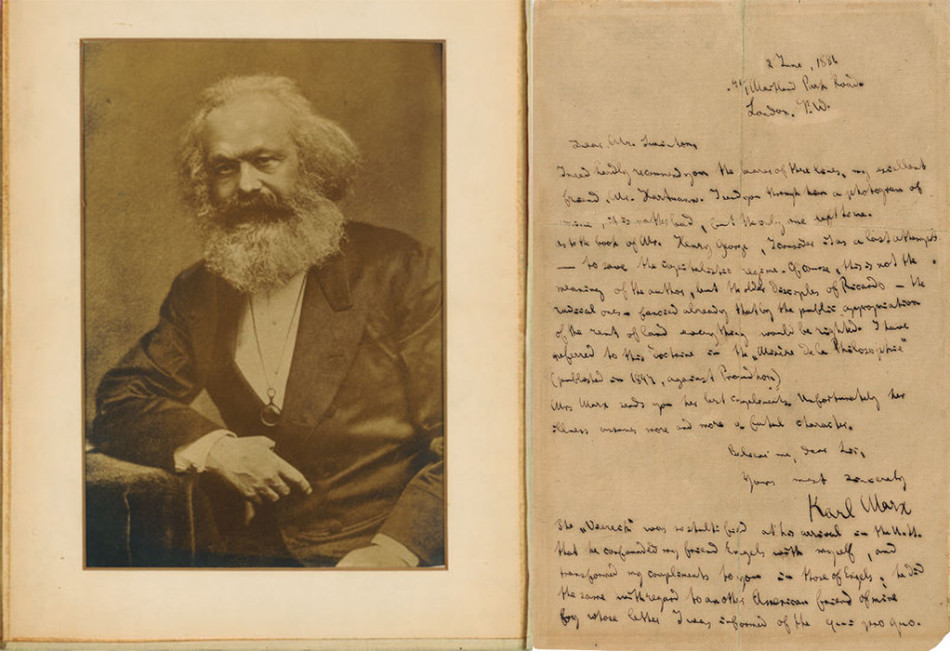 2 June, 1881
41, Maitland Park Road.
London. N.W.
Dear Mr. Swinton,
I need hardly recommend you the bearer of these lines, my excellent
friend, Mr. Hartmann. I send you through him a photogram of
mine; it is rather bad, but the only one left me.
As to the book of Mr. Henry George, I consider it as a last attempt
— to save the capitalistic regime. Of course, this is not the
meaning of the author, but the older disciples of Ricardo — the
radical ones — fancied already that by the public appropriation
of the rent of land everything would be righted. I have
referred to this doctrine in the "Misère de la Philosophie"
(published in 1847, against Proudhon)
Mrs Marx sends you her best compliments. Unfortunately her
illness assumes more and more a fatal character.
Believe me, dear Sir,
Yours most sincerely
Karl Marx
The "Viereck" was so stultified at his arrival in the U. St.
that he confounded my friend Engels with myself, and
transformed my compliments to you in those of Engels; he did
the same with regard to another American friend of mine
by whose letter I was informed of the qui pro quo.